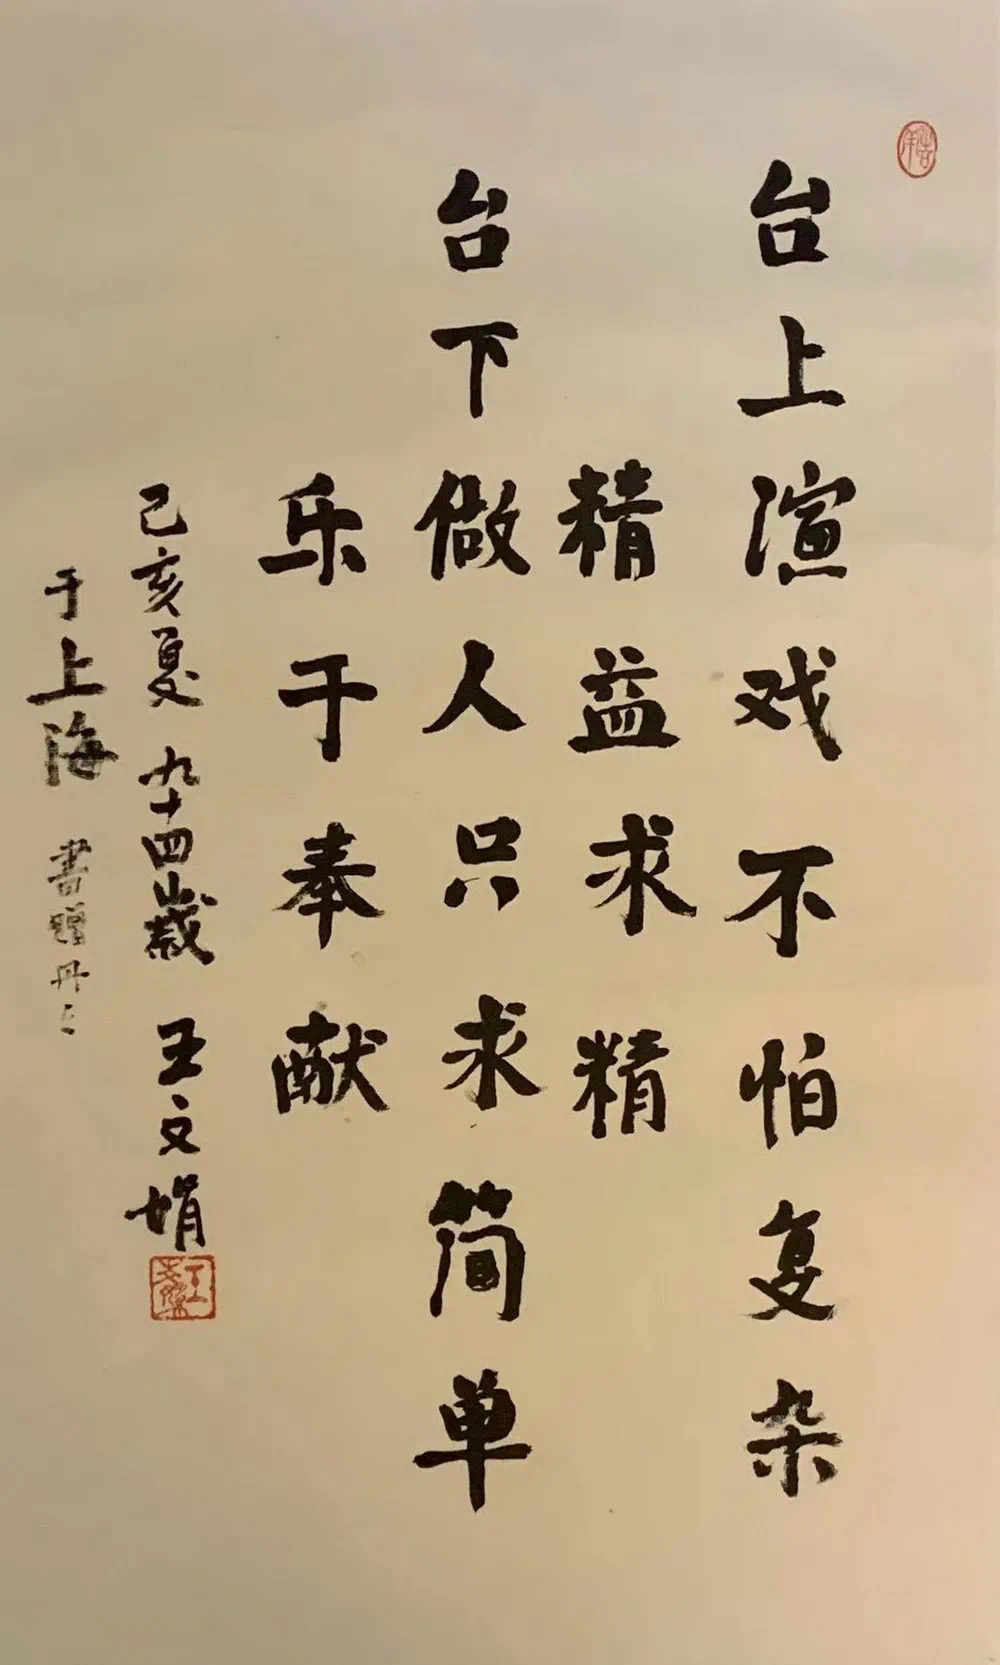 台上演戏不怕复杂
精益求精
台下做人只求简单
乐于奉献
己亥夏 九十四岁 王文娟
于上海 書赠丹丹